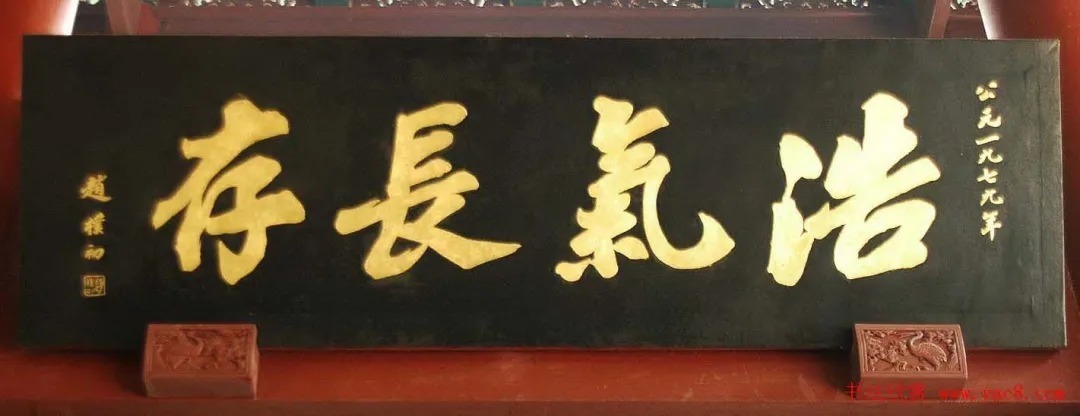 公元一九七九年
浩氣長存
趙樸初
www.yac8.com